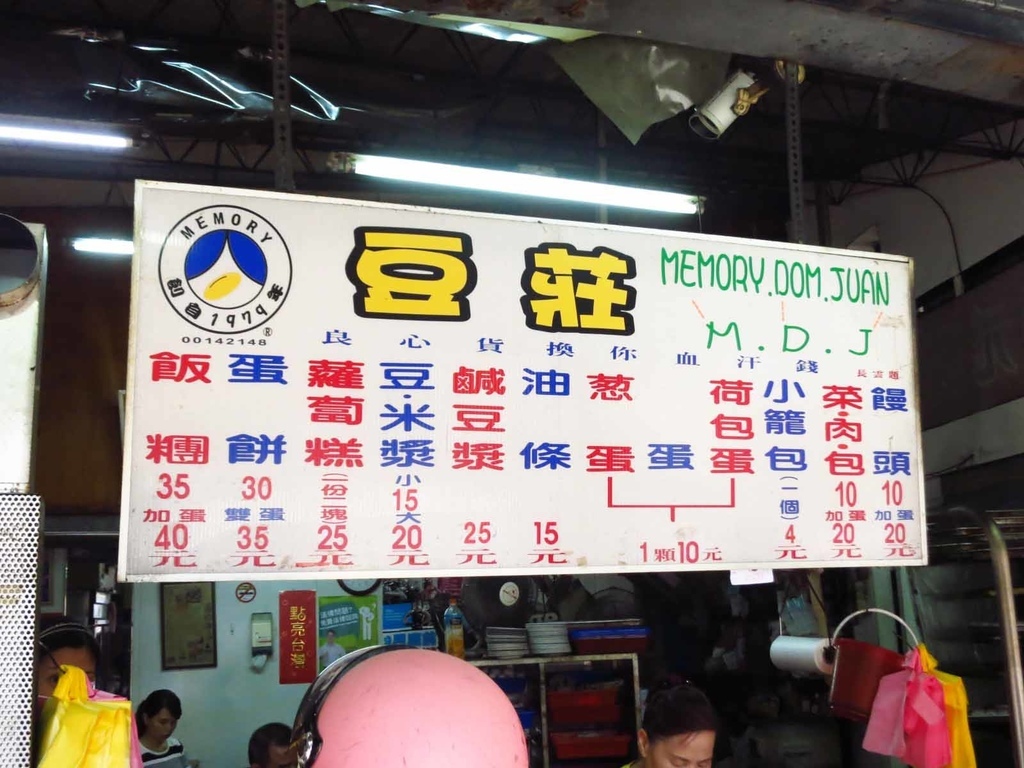 MEMORY
創自1979年
®
00142148
豆莊
MEMORY.DOM.JUAN
M.D.J
良心貨換你血汗錢
長雲題
飯糰
35
加蛋
40
元
蛋餅
30
雙蛋
35
元
蘿蔔糕
(一份一塊)
25
元
豆·米漿
小
15
大
20
元
鹹豆漿
25
元
油條
15
元
葱蛋
蛋
荷包蛋
1顆10元
小籠包
(一個)
4
元
菜·肉·包
10
加蛋
20
元
饅頭
10
加蛋
20
元
點亮台灣